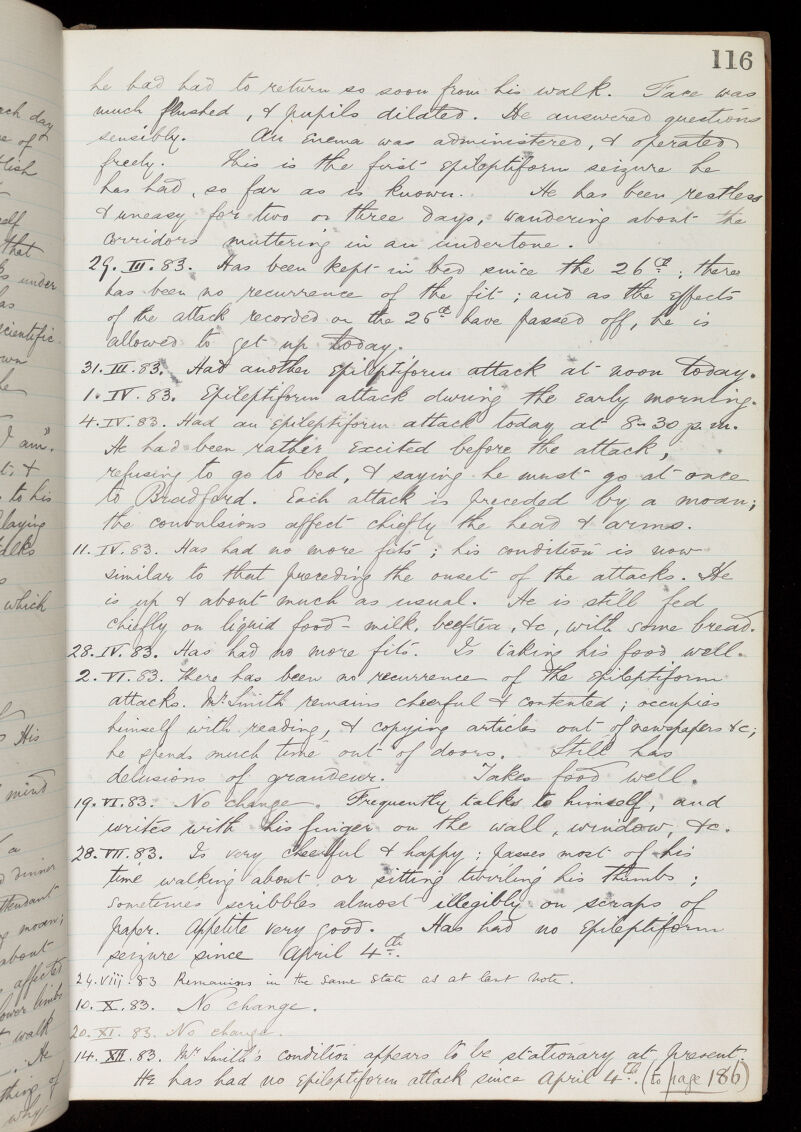 116
he had had to return so soon from his walk. Face was
much flushed, & pupils dilated. He answered questions
sensibly. An Enema was administered, & operated
freely. This is the first epileptiform seizure he
has had, so far as is known. He has been restless
& uneasy for two or three days, wandering about the
corridors muttering in an undertone.
29.III.83. Has been kept in bed since the 26th; there
has been no recurrence of the fit; and as the effects
of the attack recorded on the 26th have passed off, he is
allowed to get up today.
31.III.83. Had another Epileptiform attack at noon today.
1.IV.83. Epileptiform attack during the early morning.
4.IV.83. Had an Epileptiform attack today at 8-30 p.m.
He had been rather excited before the attack,
refusing to go to bed, & saying he must go at once
to Bradford. Each attack is preceded by a moan;
the convulsions affect chiefly the head & arms.
11.IV.83. Has had no more fits; his condition is now
similar to that preceding the onset of the attacks. He
is up & about much as usual. He is still fed
chiefly on liquid food - milk, beef-tea, &c, with some bread.
28.IV.83. Has had no more fits. Is taking his food well.
2.VI.83. There has been no recurrence of the epileptiform
attacks. Mr. Smith remains cheerful & contented; occupies
himself with reading, & copying articles out of newspapers &c;
he spends much time out of doors. Still has
delusions of grandeur. Takes food well.
19.VI.83. No change. Frequently talks to himself, and
writes with his finger on the wall, window, &c.
28.VII.83. Is very cheerful & happy; passes most of his
time walking about or sitting twirling his thumbs;
sometimes scribbles almost illegibly on scraps of
paper. Appetite very good. Has had no Epileptiform
seizure since April 4th.
24.VIII.83 Remains in the same state as at last note.
10.X.83. No change.
20.XI.83. No change.
14.XII.83. Mr Smith's condition appears to be stationary at present.
He has had no epileptiform attack since April 4th. (to page 186)